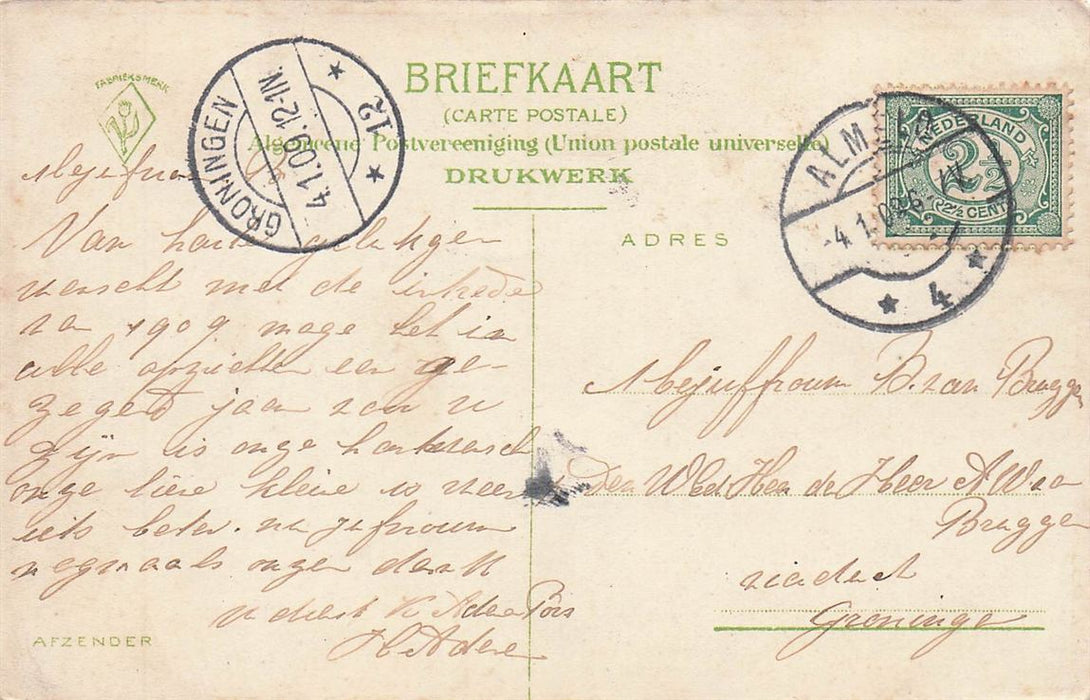 FABRIEKSMERK
BRIEFKAART
(CARTE POSTALE)
Algemeene Postvereeniging (Union postale universelle)
DRUKWERK
GRONINGEN
4.1.09.12-1N.
12
ALMELO
-4.1.09.6-
4
NEDERLAND
2½
CENT
Mejufrou
Van harte gelukgen
wenscht met de intrede
van 1909 mage het in
alle opzichten een ge-
zegend jaar van u
zijn is onze hartwensch
onze lieve kleine is weer
iets beter. nu jufrouw
nogmaals onzen dank
u
AFZENDER
ADRES
Mejuffrouw B. van Brugge
Den Heer A W van
Bruggen
viaduct
Groningen